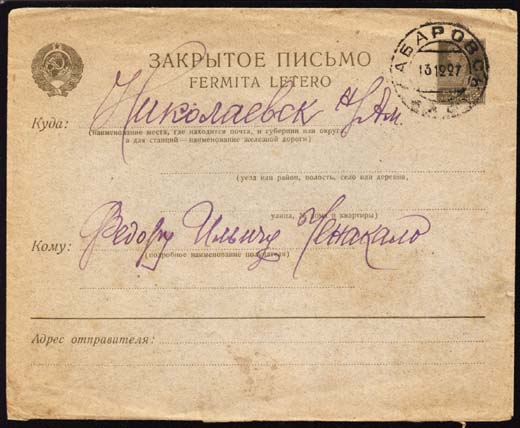 ЗАКРЫТОЕ ПИСЬМО
FERMITA LETERO
ХАБАРОВСК
13 12 27
Куда: Николаевск н/Ам
(наименование места, где находится почта, и губернии или округа
а для станций—наименование железной дороги)
(уезд или район, волость, село или деревня,
улица, № дома и квартиры)
Кому: Федору Ильичу Ченакало
(подробное наименование получателя)
Адрес отправителя: